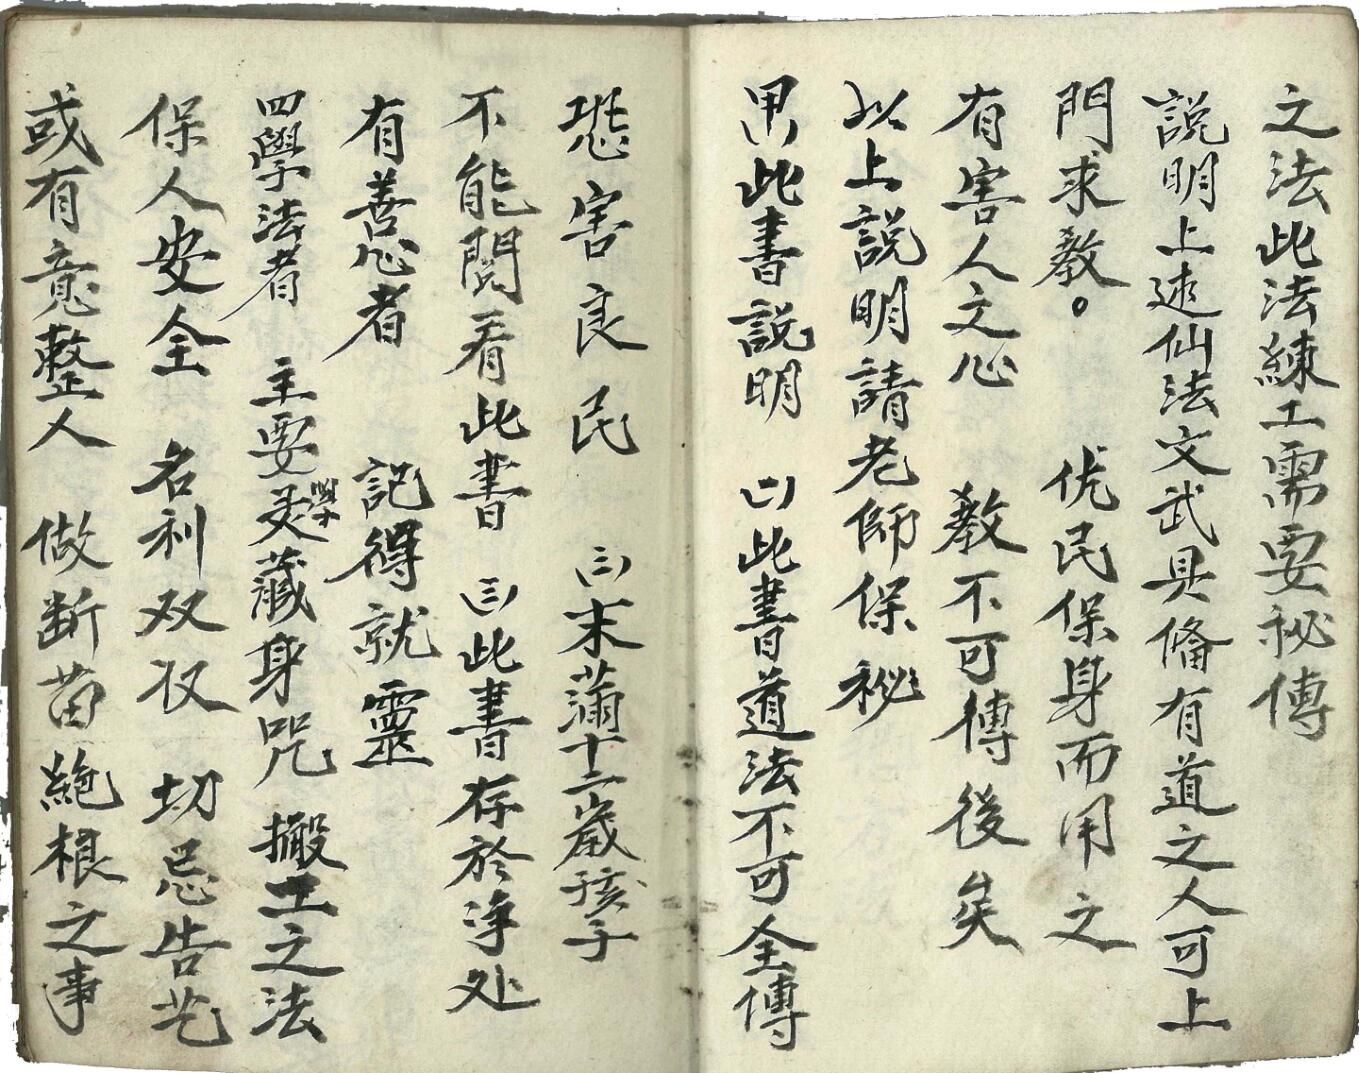 之法此法練工需要祕傳
説明上述仙法文武具偹有道之人可上
門求教。 優民保身而用之
有害人之心 教不可傳後矣
以上説明請老師保祕
男此書説明 (一)此書道法不可全傳
恐害良民 (二)末滿十二歲孩子
不能閱看此書 (三)此書存於净处
有善心者 記得就靈
四學法者 主要學灵藏身咒 搬工之法
保人安全 名利双收 切忌告艺
或有意整人 做断苗絶根之事